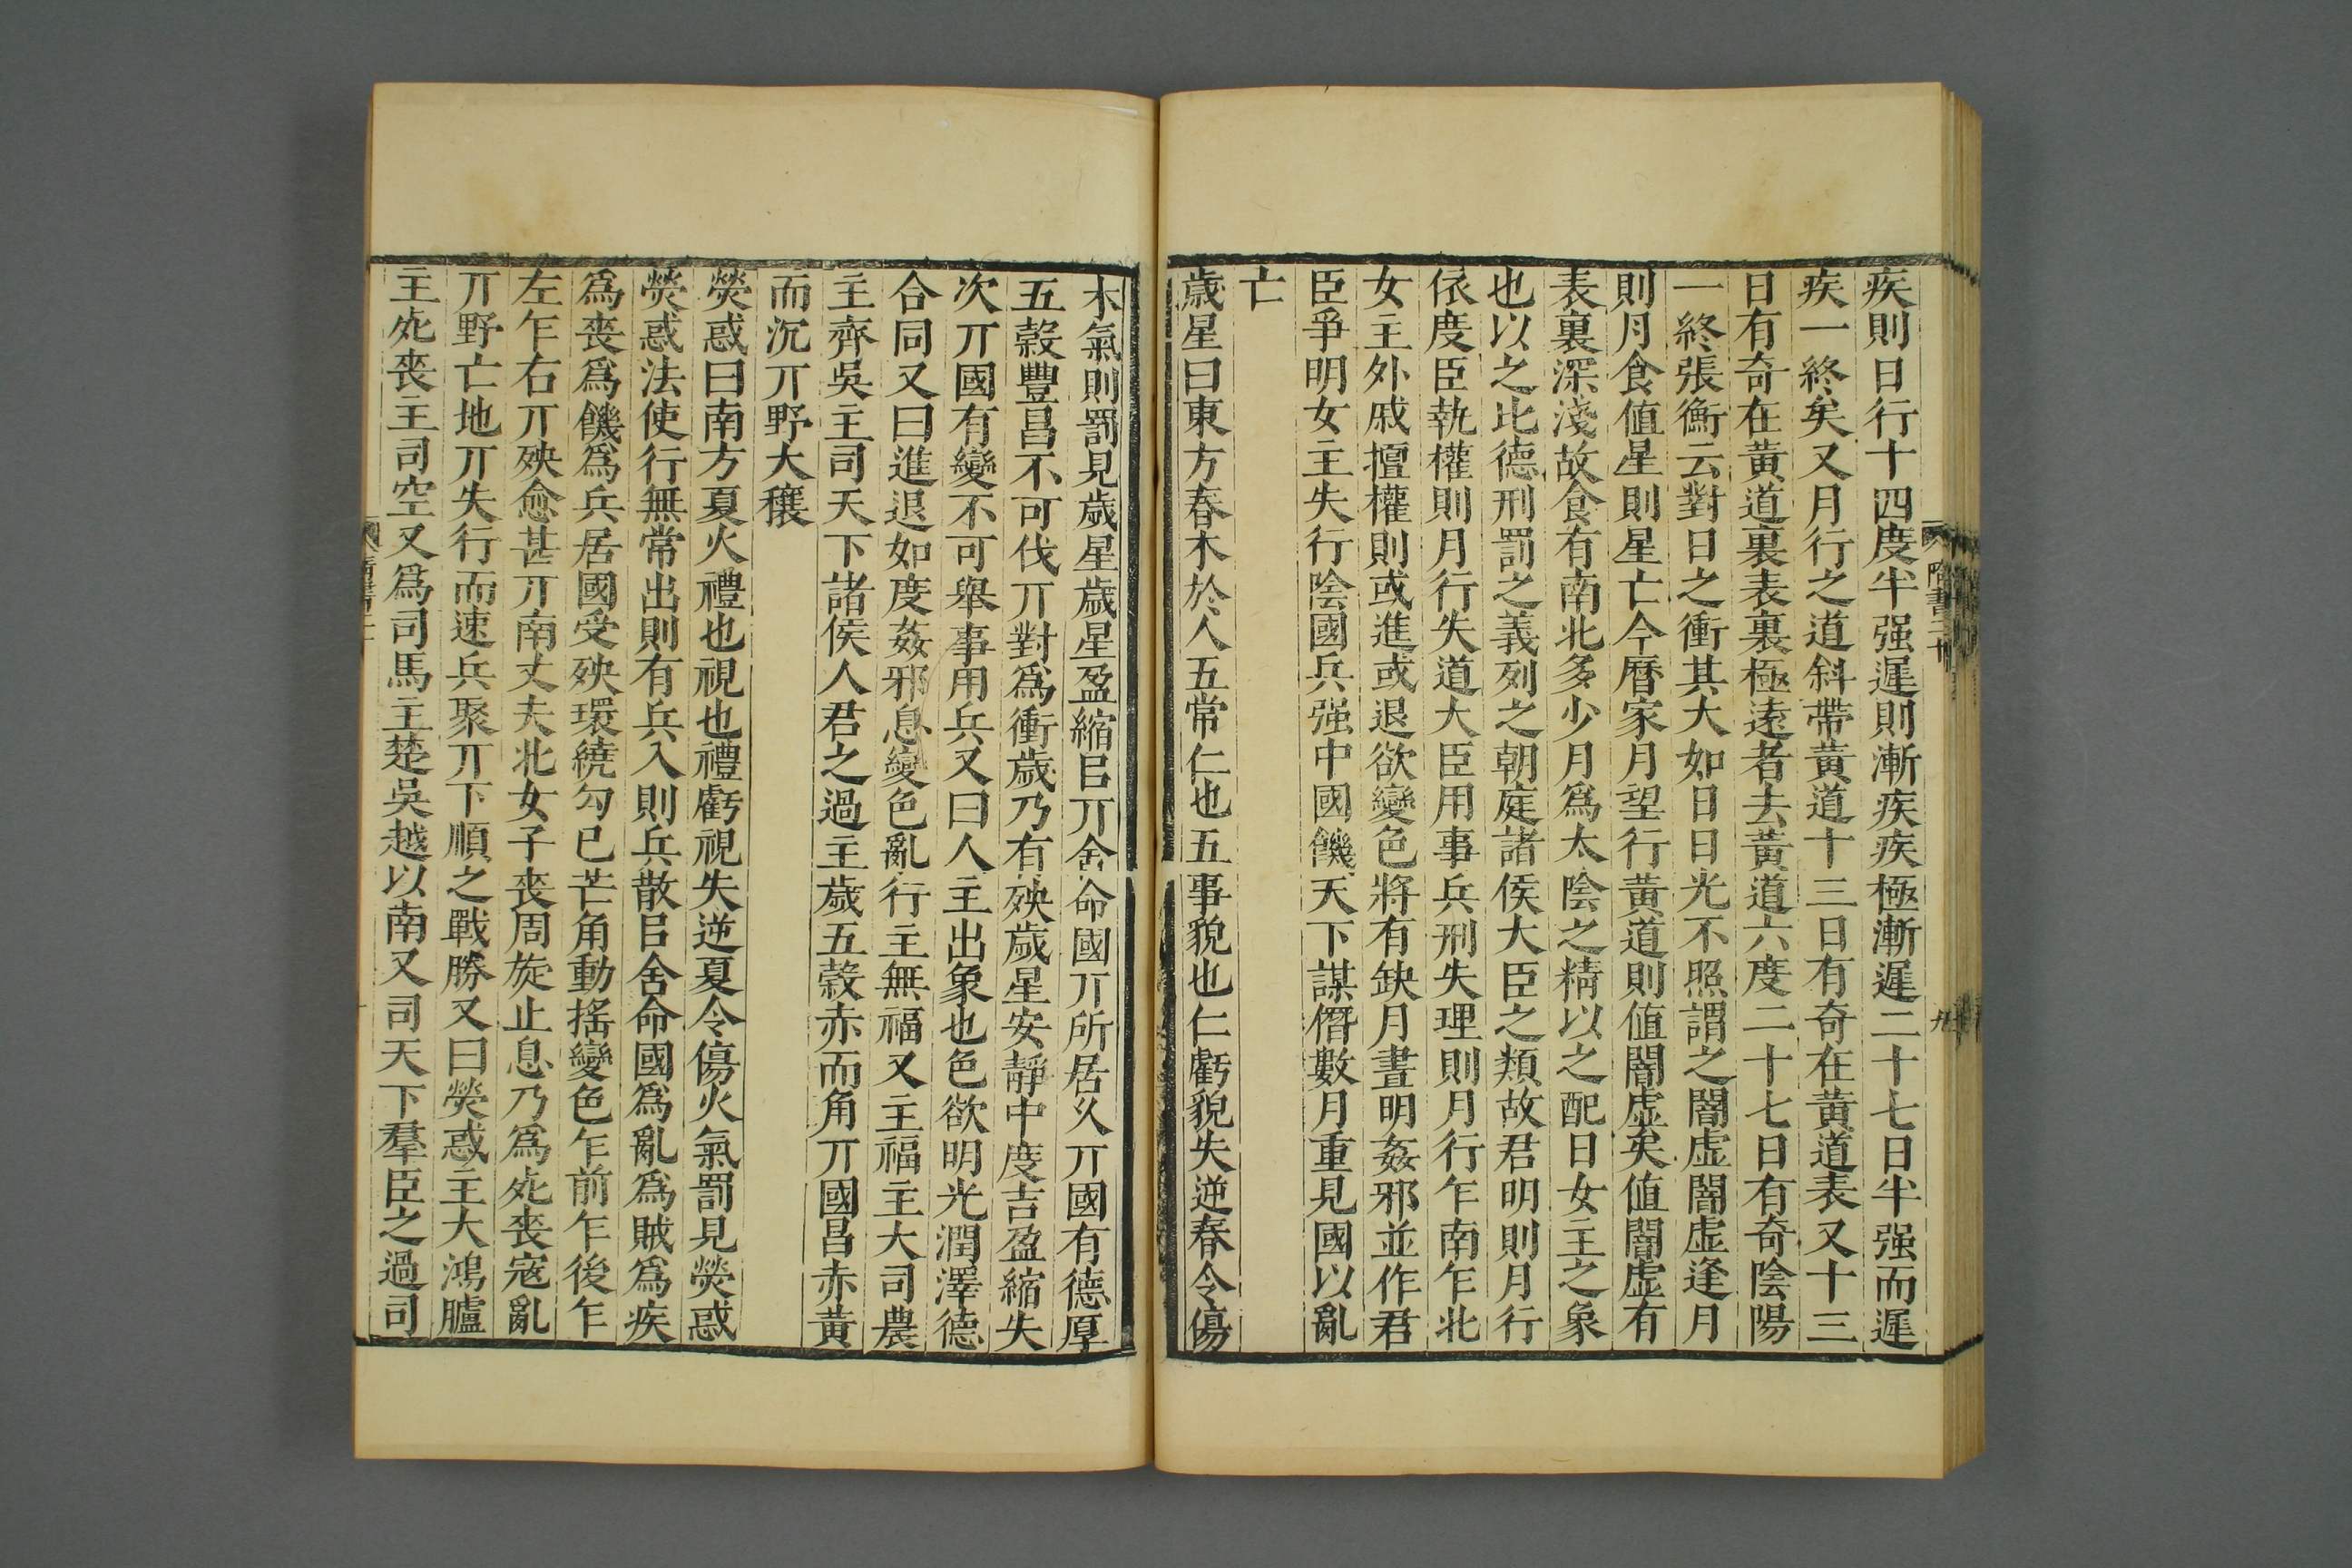 疾則日行十四度半强遲則漸疾疾極漸遲二十七日半强而遲
疾一終矣又月行之道斜帶黃道十三日有奇在黃道表又十三
日有奇在黃道裏表裏極遠者去黃道六度二十七日有奇陰陽
一終張衡云對日之衝其大如日日光不照謂之闇虛闇虛逢月
則月食值星則星亡今曆家月望行黃道則值闇虛矣值闇虛有
表裏深淺故食有南北多少月爲太陰之精以之配日女主之象
也以之比德刑罰之義列之朝庭諸侯大臣之類故君明則月行
依度臣執權則月行失道大臣用事兵刑失理則月行乍南乍北
女主外戚擅權則或進或退欲變色將有缺月晝明姦邪並作君
臣爭明女主失行陰國兵强中國饑天下謀僭數月重見國以亂
亡
歲星曰東方春木於人五常仁也五事貌也仁虧貌失逆春令傷
隋書二十
九
木氣則罰見歲星歲星盈縮㠯丌舍命國丌所居久丌國有德厚
五穀豐昌不可伐丌對爲衝歲乃有殃歲星安靜中度吉盈縮失
次丌國有變不可舉事用兵又曰人主出象也色欲明光潤澤德
合同又曰進退如度姦邪息變色亂行主無福又主福主大司農
主齊吳主司天下諸侯人君之過主歲五穀赤而角丌國昌赤黃
而沉丌野大穰
熒惑曰南方夏火禮也視也禮虧視失逆夏令傷火氣罰見熒惑
熒惑法使行無常出則有兵入則兵散㠯舍命國爲亂爲賊爲疾
爲喪爲饑爲兵居國受殃環繞勾已芒角動搖變色乍前乍後乍
左乍右丌殃愈甚丌南丈夫北女子喪周旋止息乃爲死喪寇亂
丌野亡地丌失行而速兵聚丌下順之戰勝又曰熒惑主大鴻臚
主死喪主司空又爲司馬主楚吳越以南又司天下羣臣之過司